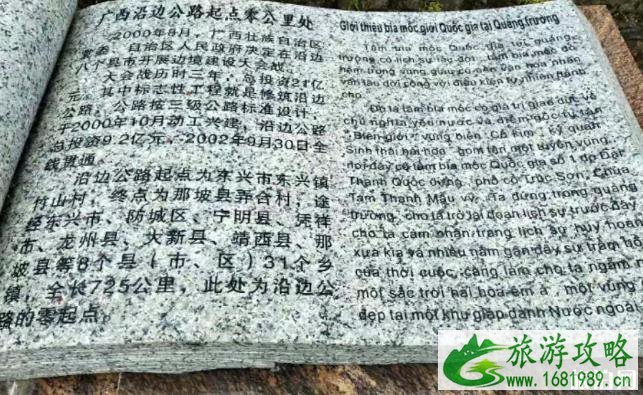 广西沿边公路起点零公里处
2000年8月，广西壮族自治区
党委、自治区人民政府决定在沿边
八个县市开展边境建设大会战。
大会战历时三年，总投资21亿
元。其中标志性工程就是修筑沿边
公路。公路按三级公路标准设计，
于2000年10月动工兴建，沿边公路
总投资9.2亿元，2002年9月30日全
线贯通。
沿边公路起点为东兴市东兴镇
竹山村，终点为那坡县弄合村，途
经东兴市、防城区、宁明县、凭祥
市、龙州县、大新县、靖西县、那
坡县等8个县（市、区）31个乡
镇，全长725公里，此处为沿边公
路的零起点。
Giới thiệu bia mốc giới Quốc gia tại Quảng trường
Tấm bia mốc Quốc gia tại quảng
trường có lịch sử lâu đời
Đó là tấm bia mốc có giá trị giáo dục về
chủ nghĩa yêu nước và điểm mốc tự tham
Biên giới vùng biên Cổ kim Kỳ quan
Sinh thái hài hòa gom tên một tuyến vùng,
nơi đây có tấm bia mốc Quốc gia số 1 dp Đất
Thanh Quốc dựng, phố cổ Trúc Sơn, Chùa
Tam Thanh Mẫu vv. Ta đứng trong quảng
trường, cho ta trở lại đoạn lịch sử trước đây
cho ta cảm nhận trang lịch sử huy hoàng
xưa kia và nhiều năm gần đây sự trầm
của thời cuộc, càng làm cho ta ngắm
một sắc trời hài hòa êm ả, một vùng
đẹp tại một khu giáp danh Nước ngoài
旅游攻略
www.1681989.cn